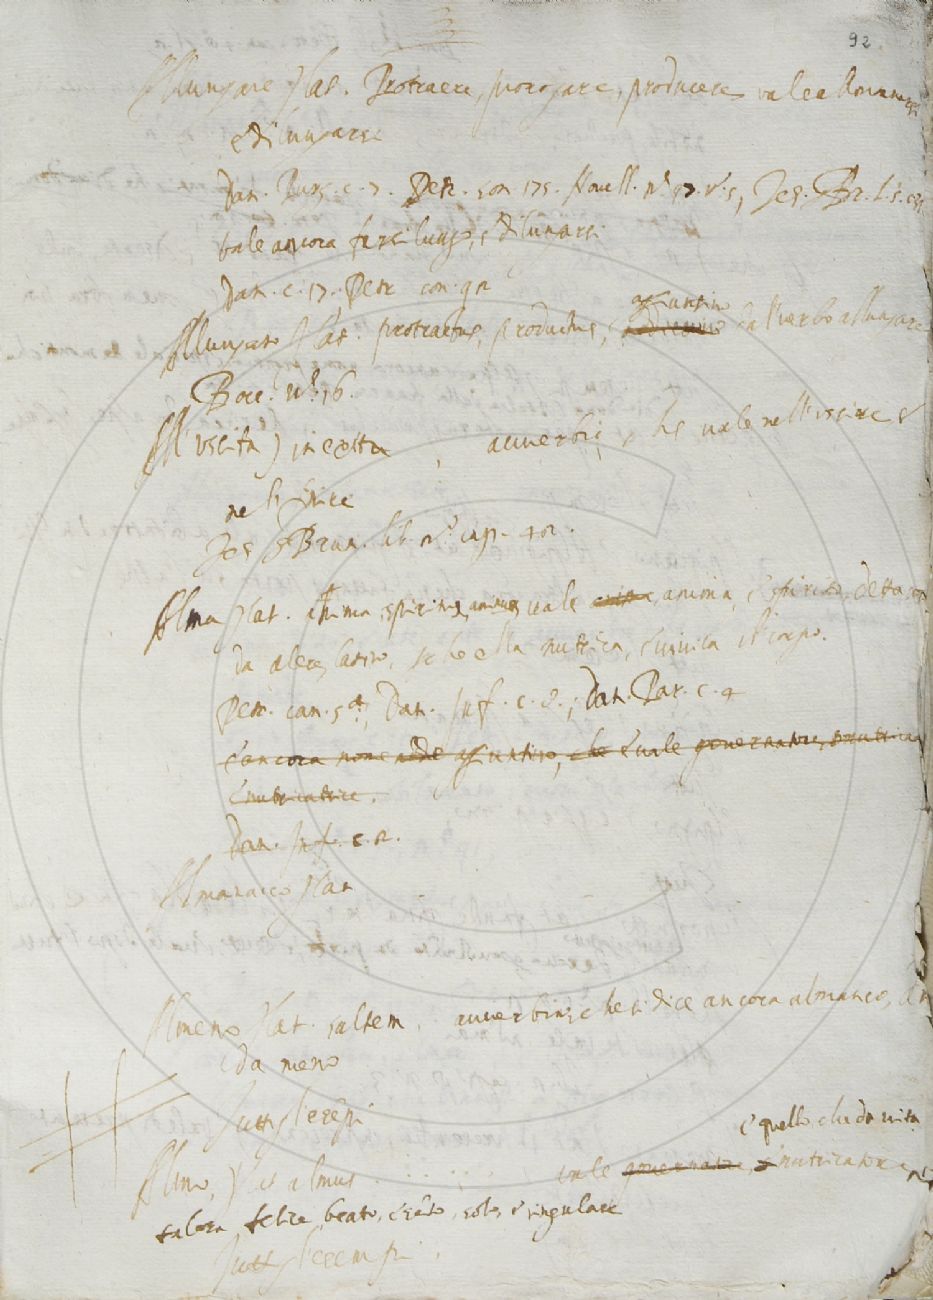 92
Allungare Lat. Protraere, prorogare, producere vale allontanare
e dilungarsi
Dan. Purg. c. 7. Petr. son 175. Novell. nº 97. v. 5, Tes. Br. l. 5. c
vale ancora farsi lungo, e dilungarsi
Dan. c. 17. Petr. con. 42
Allungato Lat. protractus, productus, aggiuntivo dal verbo allungare
Bocc. nº. 76.
All'uscita) in exitu, avverbio, che vale nell'uscire e
nel finire
Tes. Brun. lib. 2º cap. 42.
Alma Lat. anima, spiritus, animus, vale anima, e spirito, detta
da alere, latino, che ella nutrica, e vivica il corpo.
Petr. can. 5ª, Dan. Inf. c. 8., Dan. Par. c. 4
e ancora nome aggiuntivo, che vale governatore, nutrica
e nutricatrice.
Dan. Inf. c. 2.
Almanacco Lat
Almeno Lat. saltem. avverbio, che si dice ancora almanco,
e da meno
Tutti gl'esempi
e quello che da vita
Almo, Lat almus vale governatore, nutricatore
talora felice, beato, santo, solo, e singulare
Tutti gl'esempi.